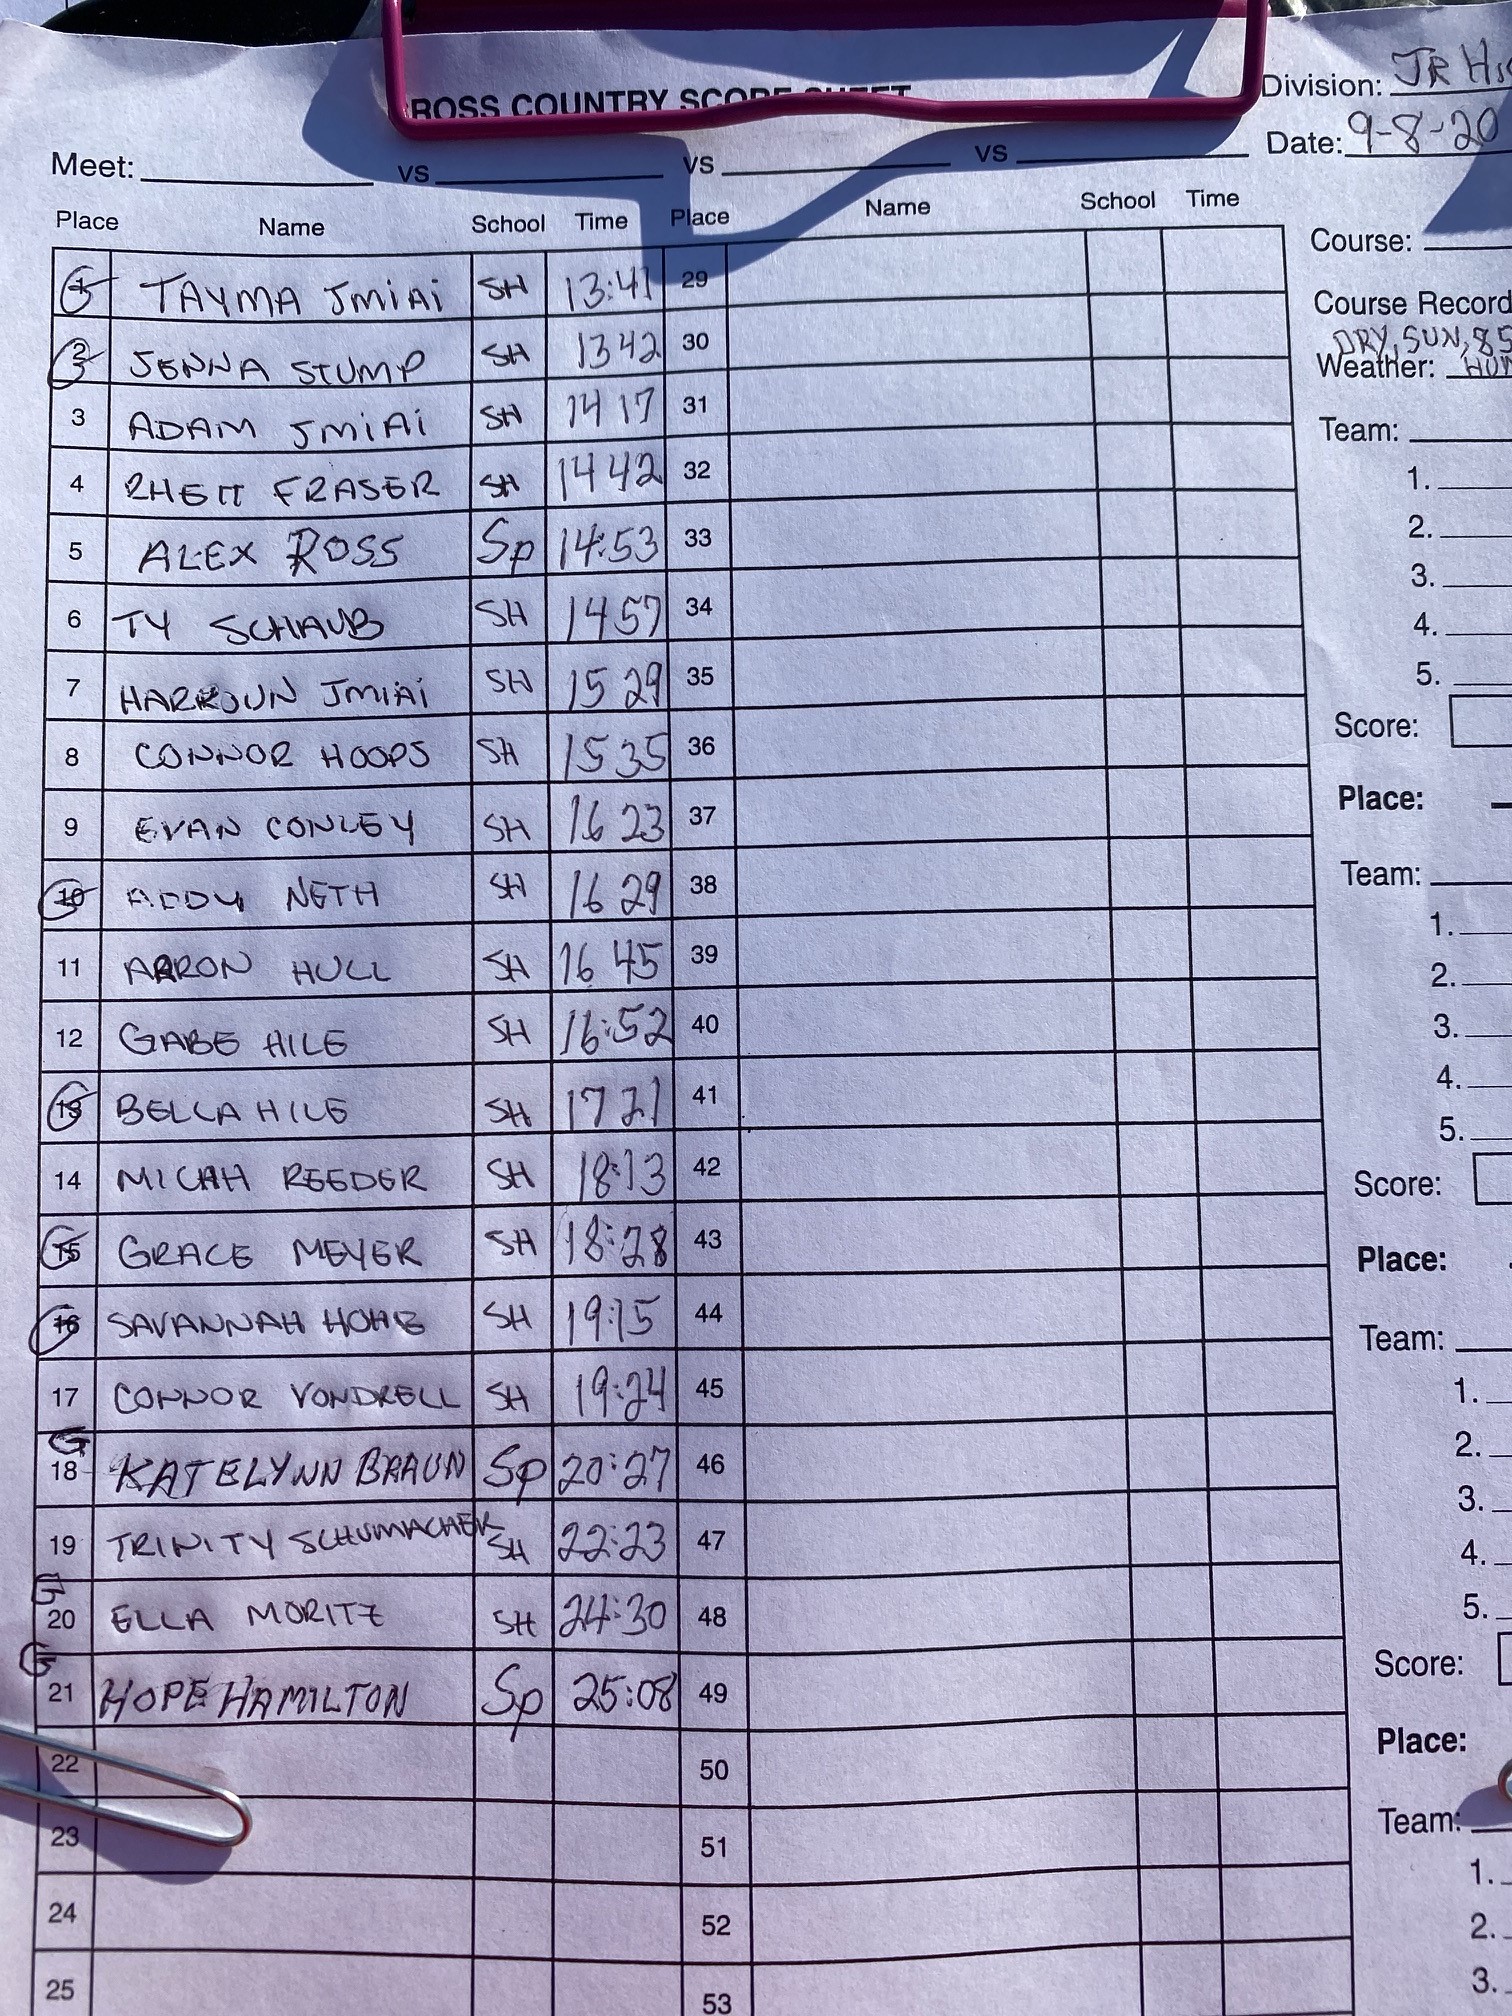 ROSS COUNTRY SCORE SHEET
Division: JR
Date: 9-8-20
Meet: vs vs vs
Place Name School Time Place Name School Time
Course:
Course Record
DRY, SUN, 85
Weather:
1 TAYMA JMIAI SH 13:41 29
2 JENNA STUMP SH 1342 30
3 ADAM JMIAI SH 1417 31
4 RHETT FRASER SH 1442 32
5 ALEX ROSS Sp 14:53 33
6 TY SCHAUB SH 1457 34
7 HARKOUN JMIAI SH 15 29 35
8 CONNOR HOOPS SH 1535 36
9 EVAN CONLEY SH 16 23 37
10 ADDY NETH SH 16 29 38
11 AARON HULL SH 16 45 39
12 GABE HILE SH 16:52 40
13 BELLA HILE SH 17 21 41
14 MICAH REEDER SH 18:13 42
G 15 GRACE MEYER SH 18:28 43
16 SAVANNAH HOHE SH 19:15 44
17 CONNOR VONDRELL SH 19:24 45
G
18 KATELYNN BRAUN Sp 20:27 46
19 TRINITY SCHUMACHER SH 22:23 47
G
20 ELLA MORITZ SH 24:30 48
G
21 HOPE HAMILTON Sp 25:08 49
22 50
23 51
24 52
25 53
Team:
1.
2.
3.
4.
5.
Score:
Place:
Team:
1.
2.
3.
4.
5.
Score:
Place:
Team:
1.
2.
3.
4.
5.
Score:
Place:
Team:
1.
2.
3.